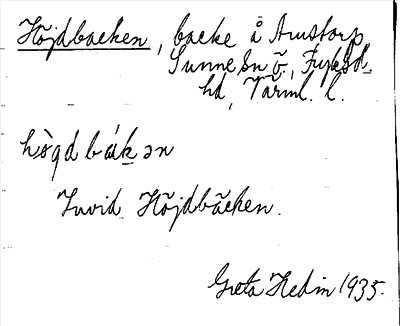 Höjdbacken, backe å Arnstorp
Sunne sn ö., Fryksd.
hd, Värml. l.
hö̀gdbákən
Invid Höjdbäcken.
Greta Hedin 1935.